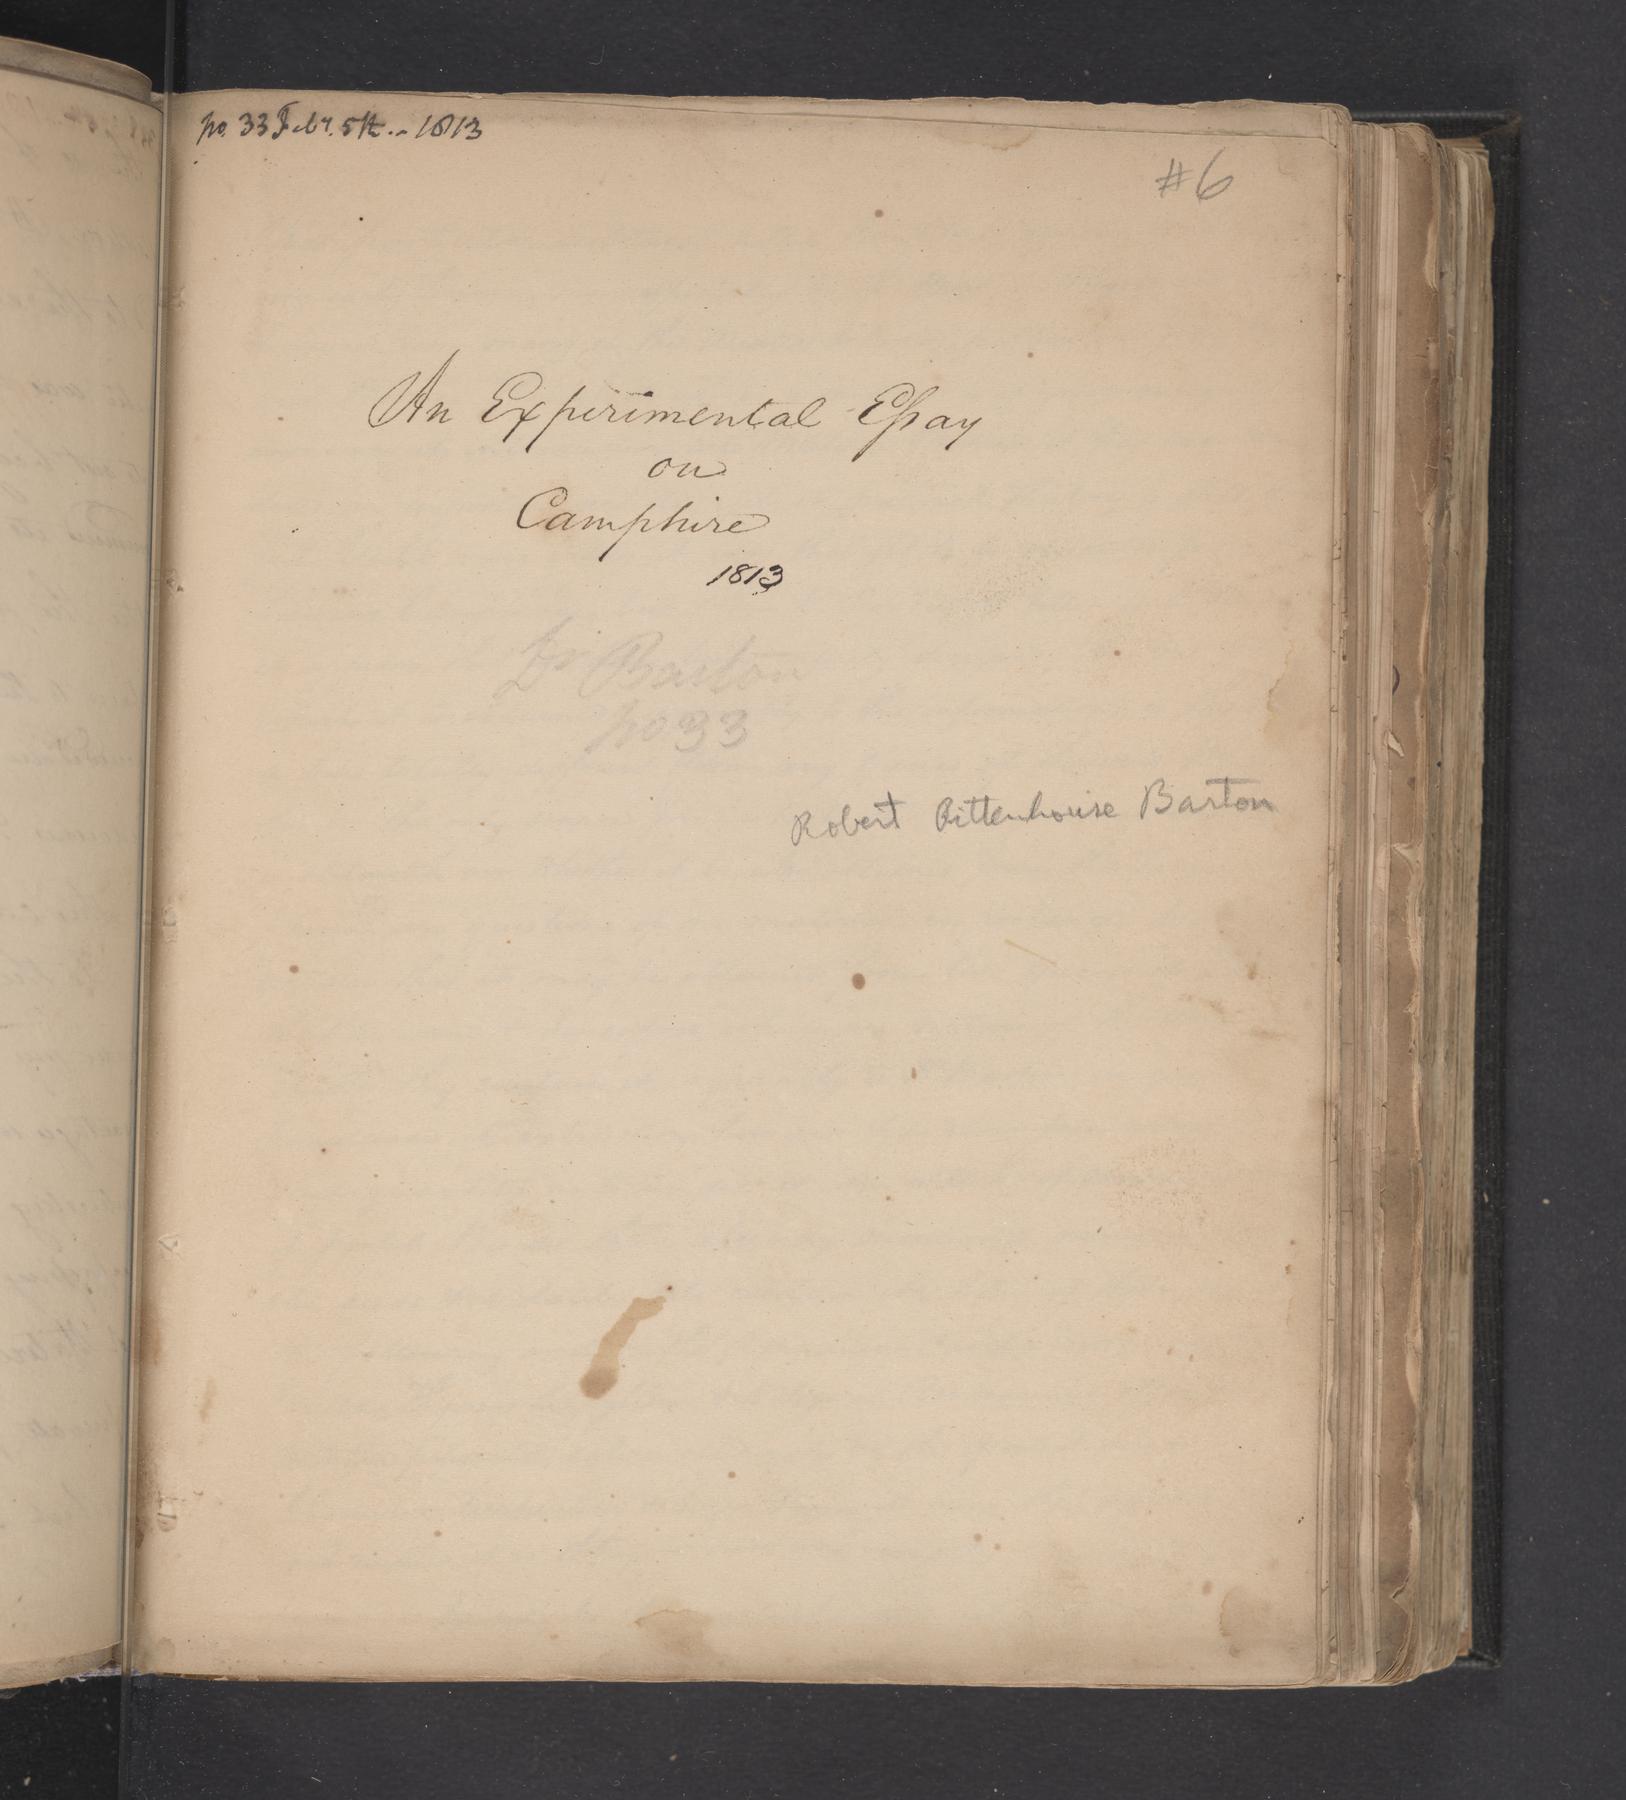 no. 33 Feby. 5th. 1813
#6
An Experimental Eſsay
on
Camphire
1813
Dr Barton
no 33
Robert Rittenhouse Barton